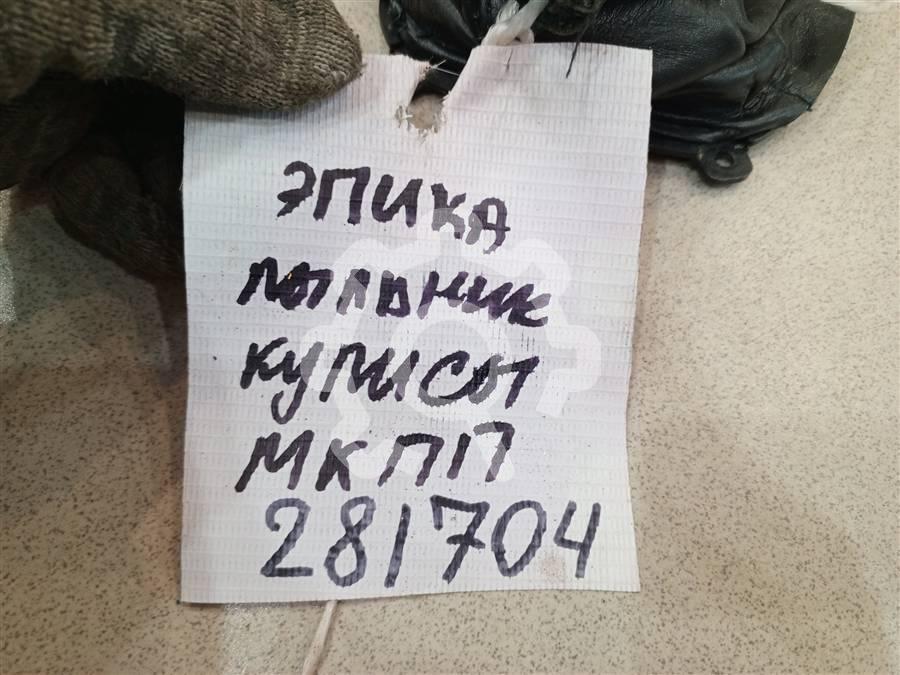 ЭПИКА
ПЫЛЬНИК
КУЛИСЫ
МКПП
281704